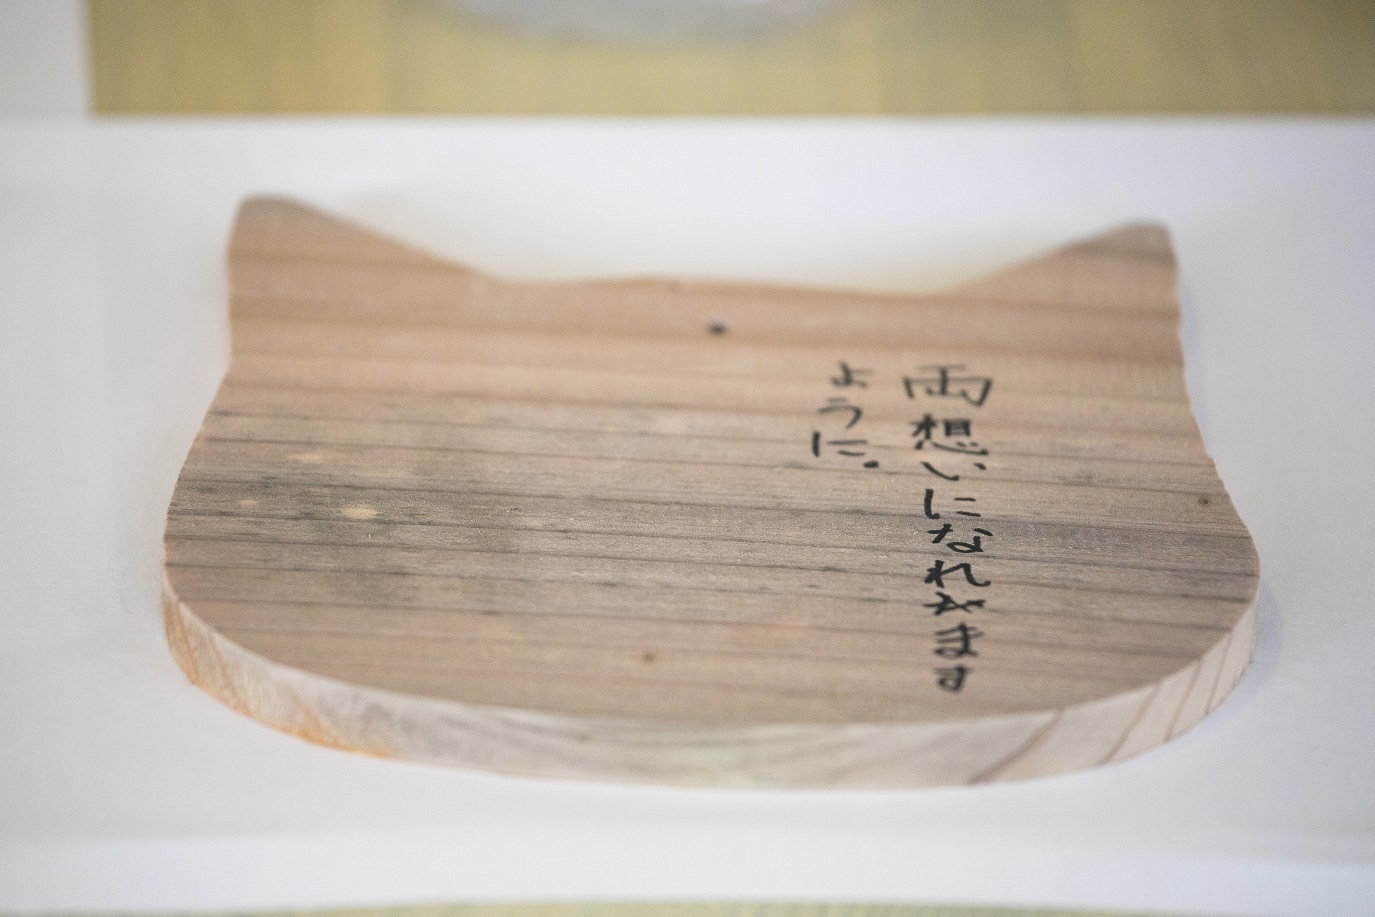 両想いになれがます
ように。